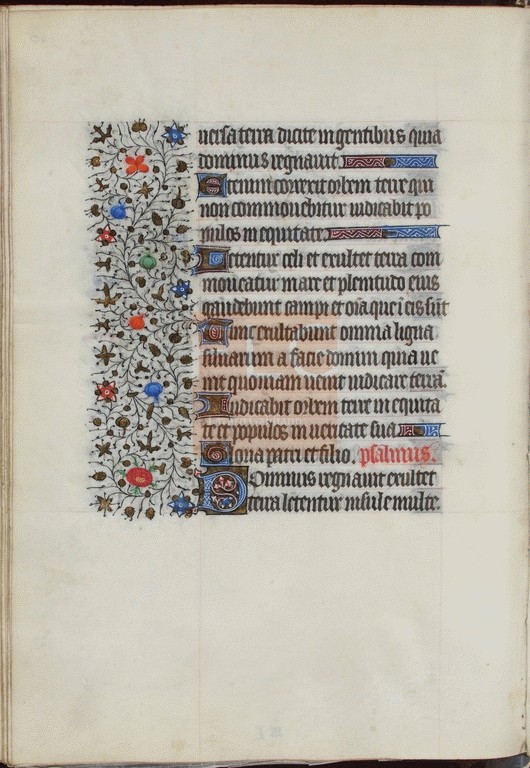 uersa terra dicite in gentibus quia
dominus regnauit.
Etenim correxit orbem terre qui
non commouebitur iudicabit po
pulos in equitate.
Letentur celi et exultet terra com
moueatur mare et plenitudo eius
gaudebunt campi et oīa que ī eis sūt
Tunc exultabunt omnia ligna
siluarum a facie domini quia ue
nit quoniam uenit iudicare terrā.
Iudicabit orbem terre in equita
te et populos in ueritate sua
Gloria patri et filio. psalmus.
Dominus regnauit exultet
terra letentur insule multe.